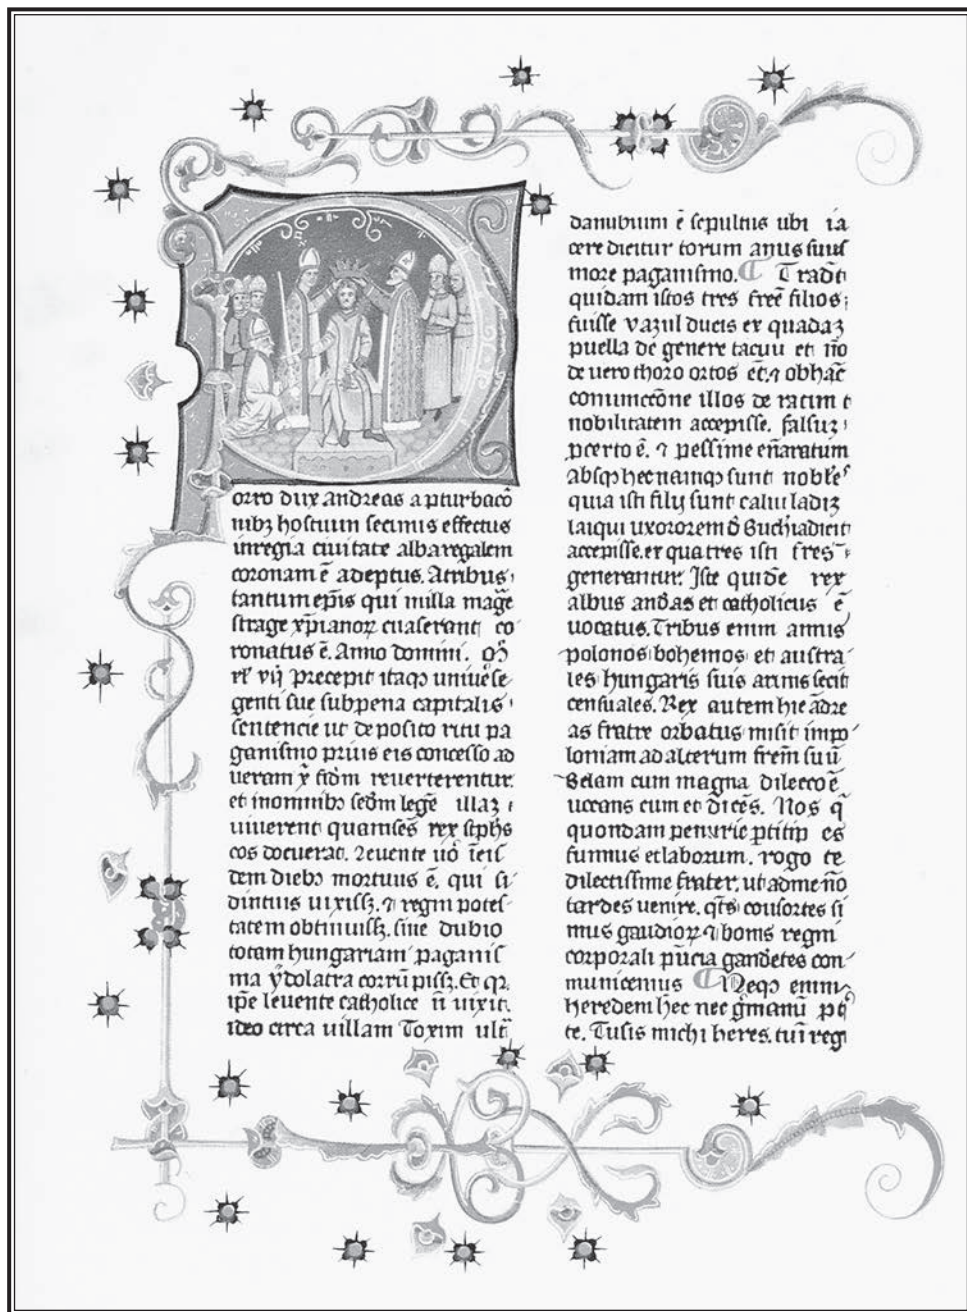 orro dux andreas a pturbacō
nibꝫ hostium securus effectus
in regia ciuitate alba regalem
coronam ē adeptus. A tribus
tantum ep̄is qui in illa mag̅e
strage xp̄ianoꝝ euaserant co
ronatus ē. Anno domini. Mͦ
xlͦ vijͦ precepit itaqꝫ uniu̾se
genti sue sub pena capitalis
sentencie ut deposito ritu pa
ganismo prius eis concesso ad
ueram xp̄i fidm̄ reuerterentur
et in omnibꝫ scd̄m legē illaꝫ
uiuerent quam sc̄s rex stephs
eos docuerat. Leuente u̾o ī eis
dem diebꝫ mortuus ē. qui si
diucius uixissꝫ. ⁊ regni potes
tatem obtinuissꝫ. sine dubio
totam hungariam paganis
ma ydolatra corrūpissꝫ. Et qꝛ
ip̄e leuente catholice n̄ uixit.
ideo circa uillam Toxun ult̄
danubium ē sepultus ubi ia
cere dicitur torum anus suus
more paganismo. ¶ Tradūt
quidam istos tres fr̄es filios
fuisse vazul ducis ex quadaꝫ
puella de genere tatun et nō
de uero thoro ortos eē. ⁊ ob hāc
coniunccōne illos de tatun
nobilitatem accepisse. falsuꝫ
ꝓ certo ē. ⁊ pessime enarratum
absqꝫ hec namqꝫ sunt nobiles
quia isti filij sunt calui ladiz
lai qui uxororem d̄ Ruthia dicit̄
accepisse. ex qua tres isti fr̄es
generantur. Iste quidē rex
albus andreas et catholicus ē
uocatus. Tribus enim annis
polonos bohemos et austra
les hungaris suis armis fecit
censuales. Rex autem hic ādre
as fratre orbatus misit in po
loniam ad alterum frēm suū
Belam cum magna dileccoē
uocans eum et dicēs. Nos q̄
quondam penurie ꝑticip es
fuimus et laborum. rogo te
dilectissime frater. ut ad me nō
tardes venire. q̄tꝰ consortes si
mus gaudioꝝ ⁊ bonis regni
corporali p̄ncia gaudētes con
municemus ¶ Neqꝫ enim
heredem hec nec g̾manū p̄t̄
te. Tu sis michi heres. tu ī regī